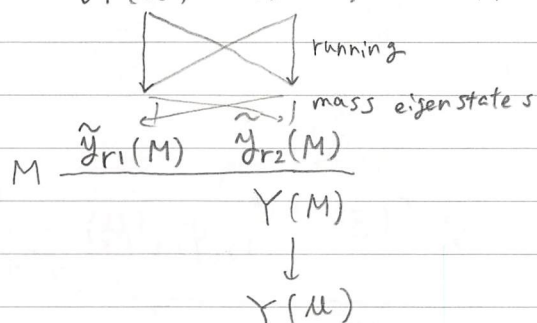 running
mass eigenstates
ỹr1(M) ỹr2(M)
M
Y(M)
Y(μ)